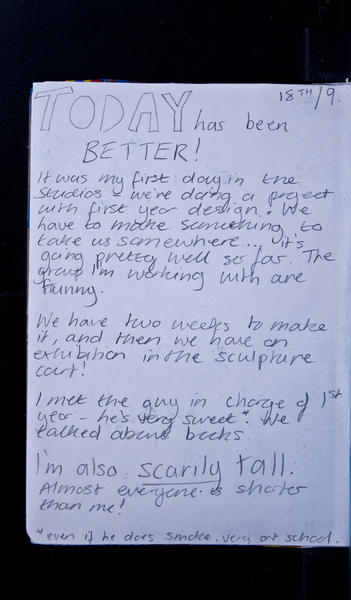 18TH/9.
TODAY has been
BETTER!
It was my first day in the
studios - we're doing a project
with first year design. We
have to make something to
take us somewhere... it's
going pretty well so far. The
group I'm working with are
funny.
We have two weeks to make
it, and then we have an
exhibition in the sculpture
court!
I met the guy in charge of 1st
year - he's very sweet*. We
talked about books.
I'm also scarily tall.
Almost everyone is shorter
than me!
*even if he does smoke. very art school.